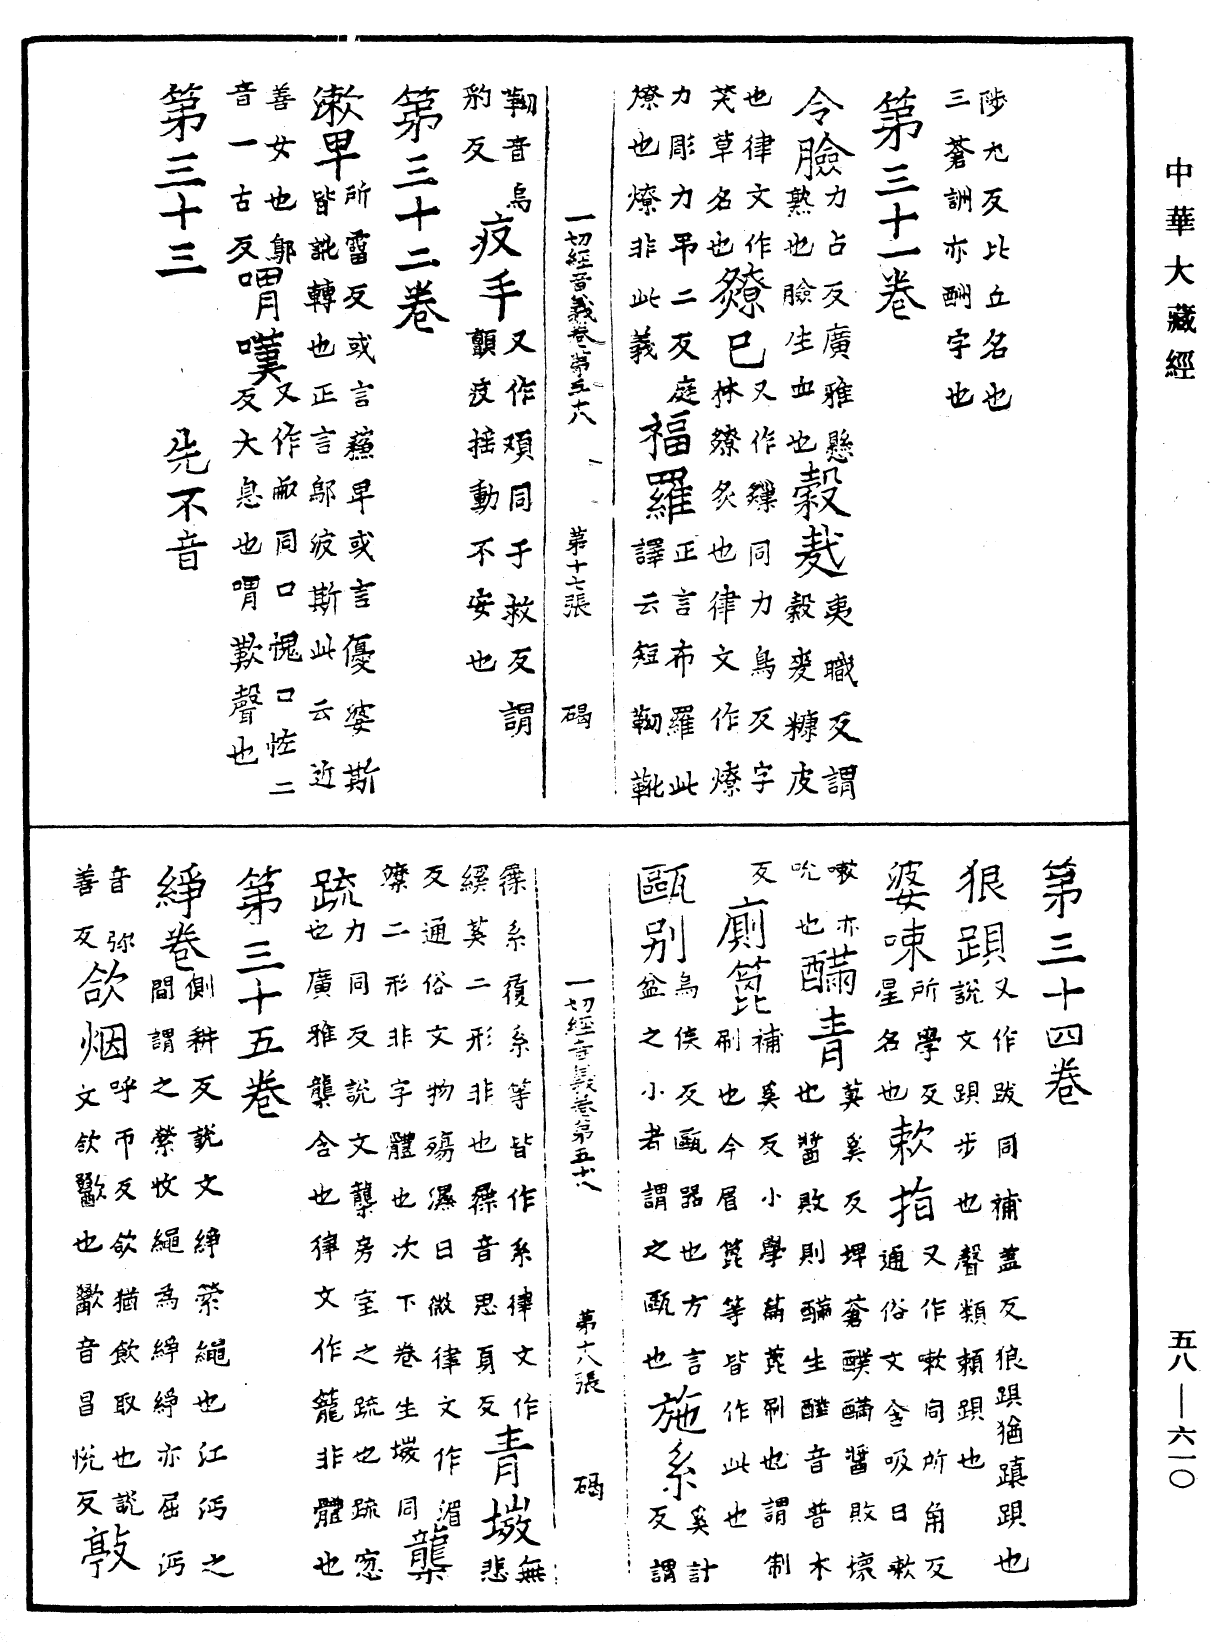 中華大藏經
陟尤反比丘名也
三蒼詶亦酬字也
第三十一卷
令臉力占反廣雅懸
熟也臉生血也
穀麧夷職反謂
穀麥糠皮
也律文作
芅草名也
燎已又作𤑗同力鳥反字
林燎炙也律文作燎
力彫力吊二反庭
燎也燎非此義
福羅正言布羅此
譯云短靿靴
一切經音義卷第五十八 第十七張 碣
靿音烏
豹反
疢手又作頄同于救反謂
顫疫搖動不安也
第三十二卷
漱早所霤反或言蘓早或言優婆斯
皆訛轉也正言鄔波斯此云近
善女也鄔
音一古反
喟嘆又作嘳同口愧口恠二
反大息也喟歎聲也
第三十三 先不音
第三十四卷
狼跟又作跋同補蓋反狼跟猶蹎跟也
說文跟步也聲類頼跟也
婆㖨所學反
星名也
㰼指又作嗽同所角反
通俗文含吸曰嗽
嗽亦
吮也
䤍青莫奚反埤蒼醭䤍醬敗壞
也醬敗則䤍生醭音普木
反
廁箆補奚反小學篇箆刷也謂制
刷也今眉箆等皆作此也
甌別烏侯反甌器也方言
盆之小者謂之甌也
施系奚計
反謂
一切經音義卷第五十八 第十八張 碣
𦆯系復系等皆作系律文作
縘䓇二形非也𦆯音思見反
青𡑞無
悲
反通俗文物殤濕曰微律文作湄
㵟二形非字體也次下卷生𡑞同
龒
䟽力同反說文龒房室之䟽也䟽窓
也廣雅龒含也律文作籠非體也
第三十五卷
綪卷側耕反說文綪縈繩也江沔之
間謂之縈收繩為綪綪亦屈沔
音弥
善反
欱烟呼帀反欱猶飲取也說
文欱歠也歠音昌悅反
敲
五八—六一〇